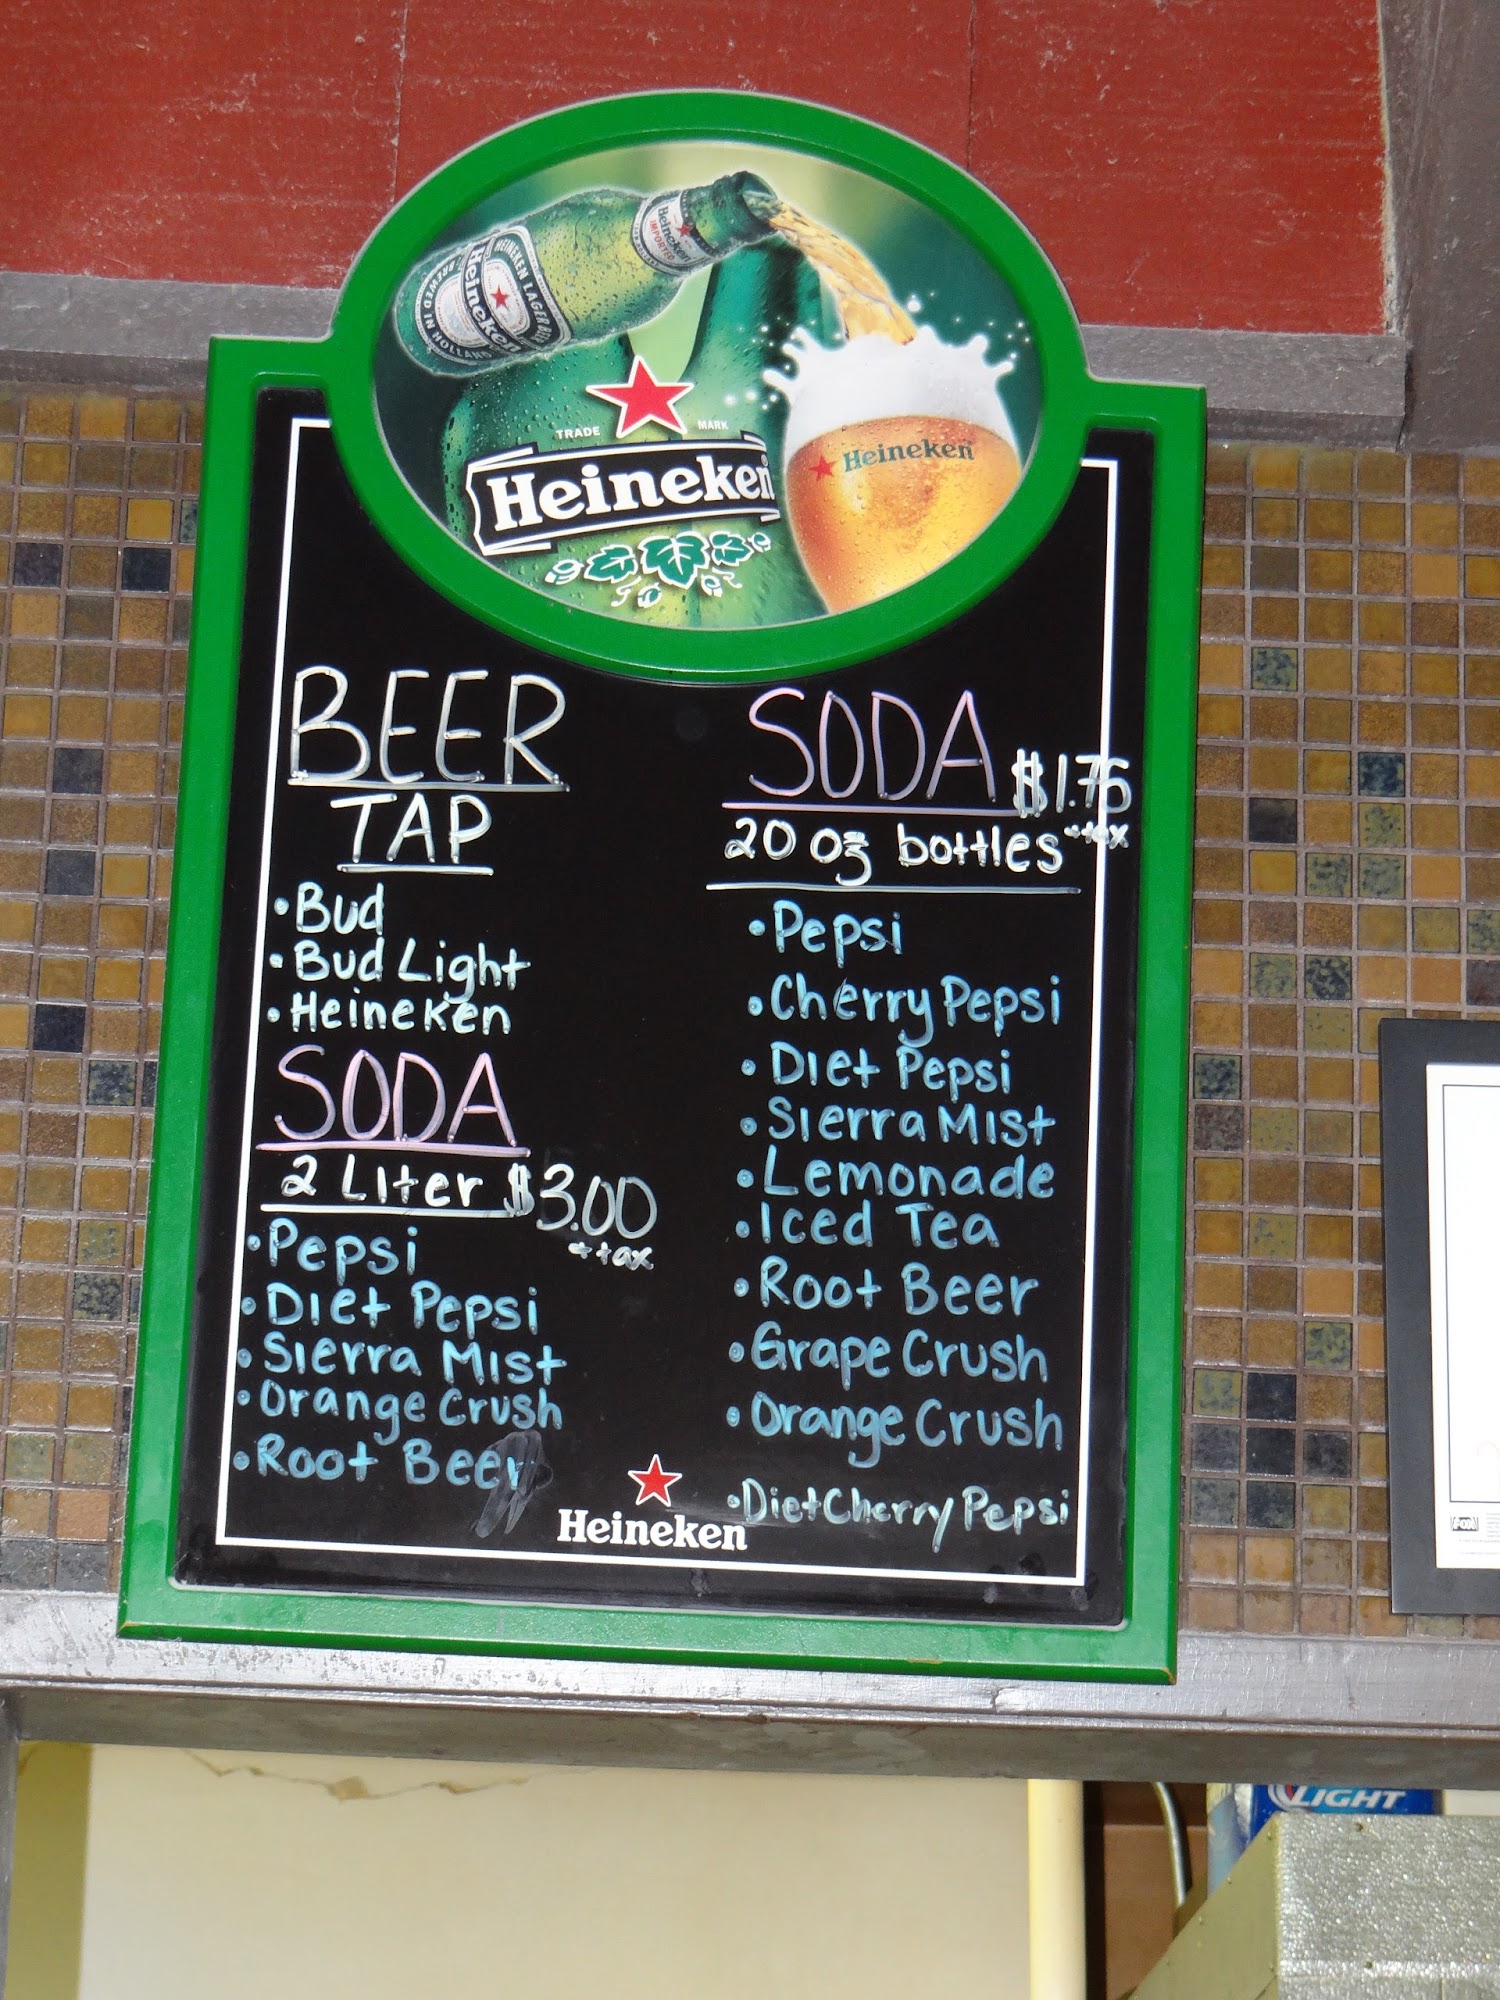 Heineken
IMPORTED
HEINEKEN LAGER BEER
Heineken
BREWED IN HOLLAND
TRADE MARK
Heineken
Heineken
BEER
TAP
•Bud
•Bud Light
•Heineken
SODA
2 Liter $3.00
+tax
•Pepsi
•Diet Pepsi
•Sierra Mist
•Orange Crush
•Root Beer
SODA $1.75
20 oz bottles +tax
•Pepsi
•Cherry Pepsi
•Diet Pepsi
•Sierra Mist
•Lemonade
•Iced Tea
•Root Beer
•Grape Crush
•Orange Crush
•Diet Cherry Pepsi
Heineken
LIGHT